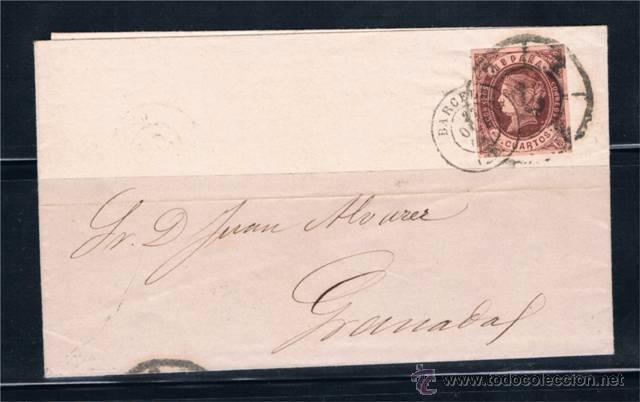 ESPAÑA
CUARTOS
BARCE
Sr. D. Juan Alvarez
Granada
www.todocoleccion.net